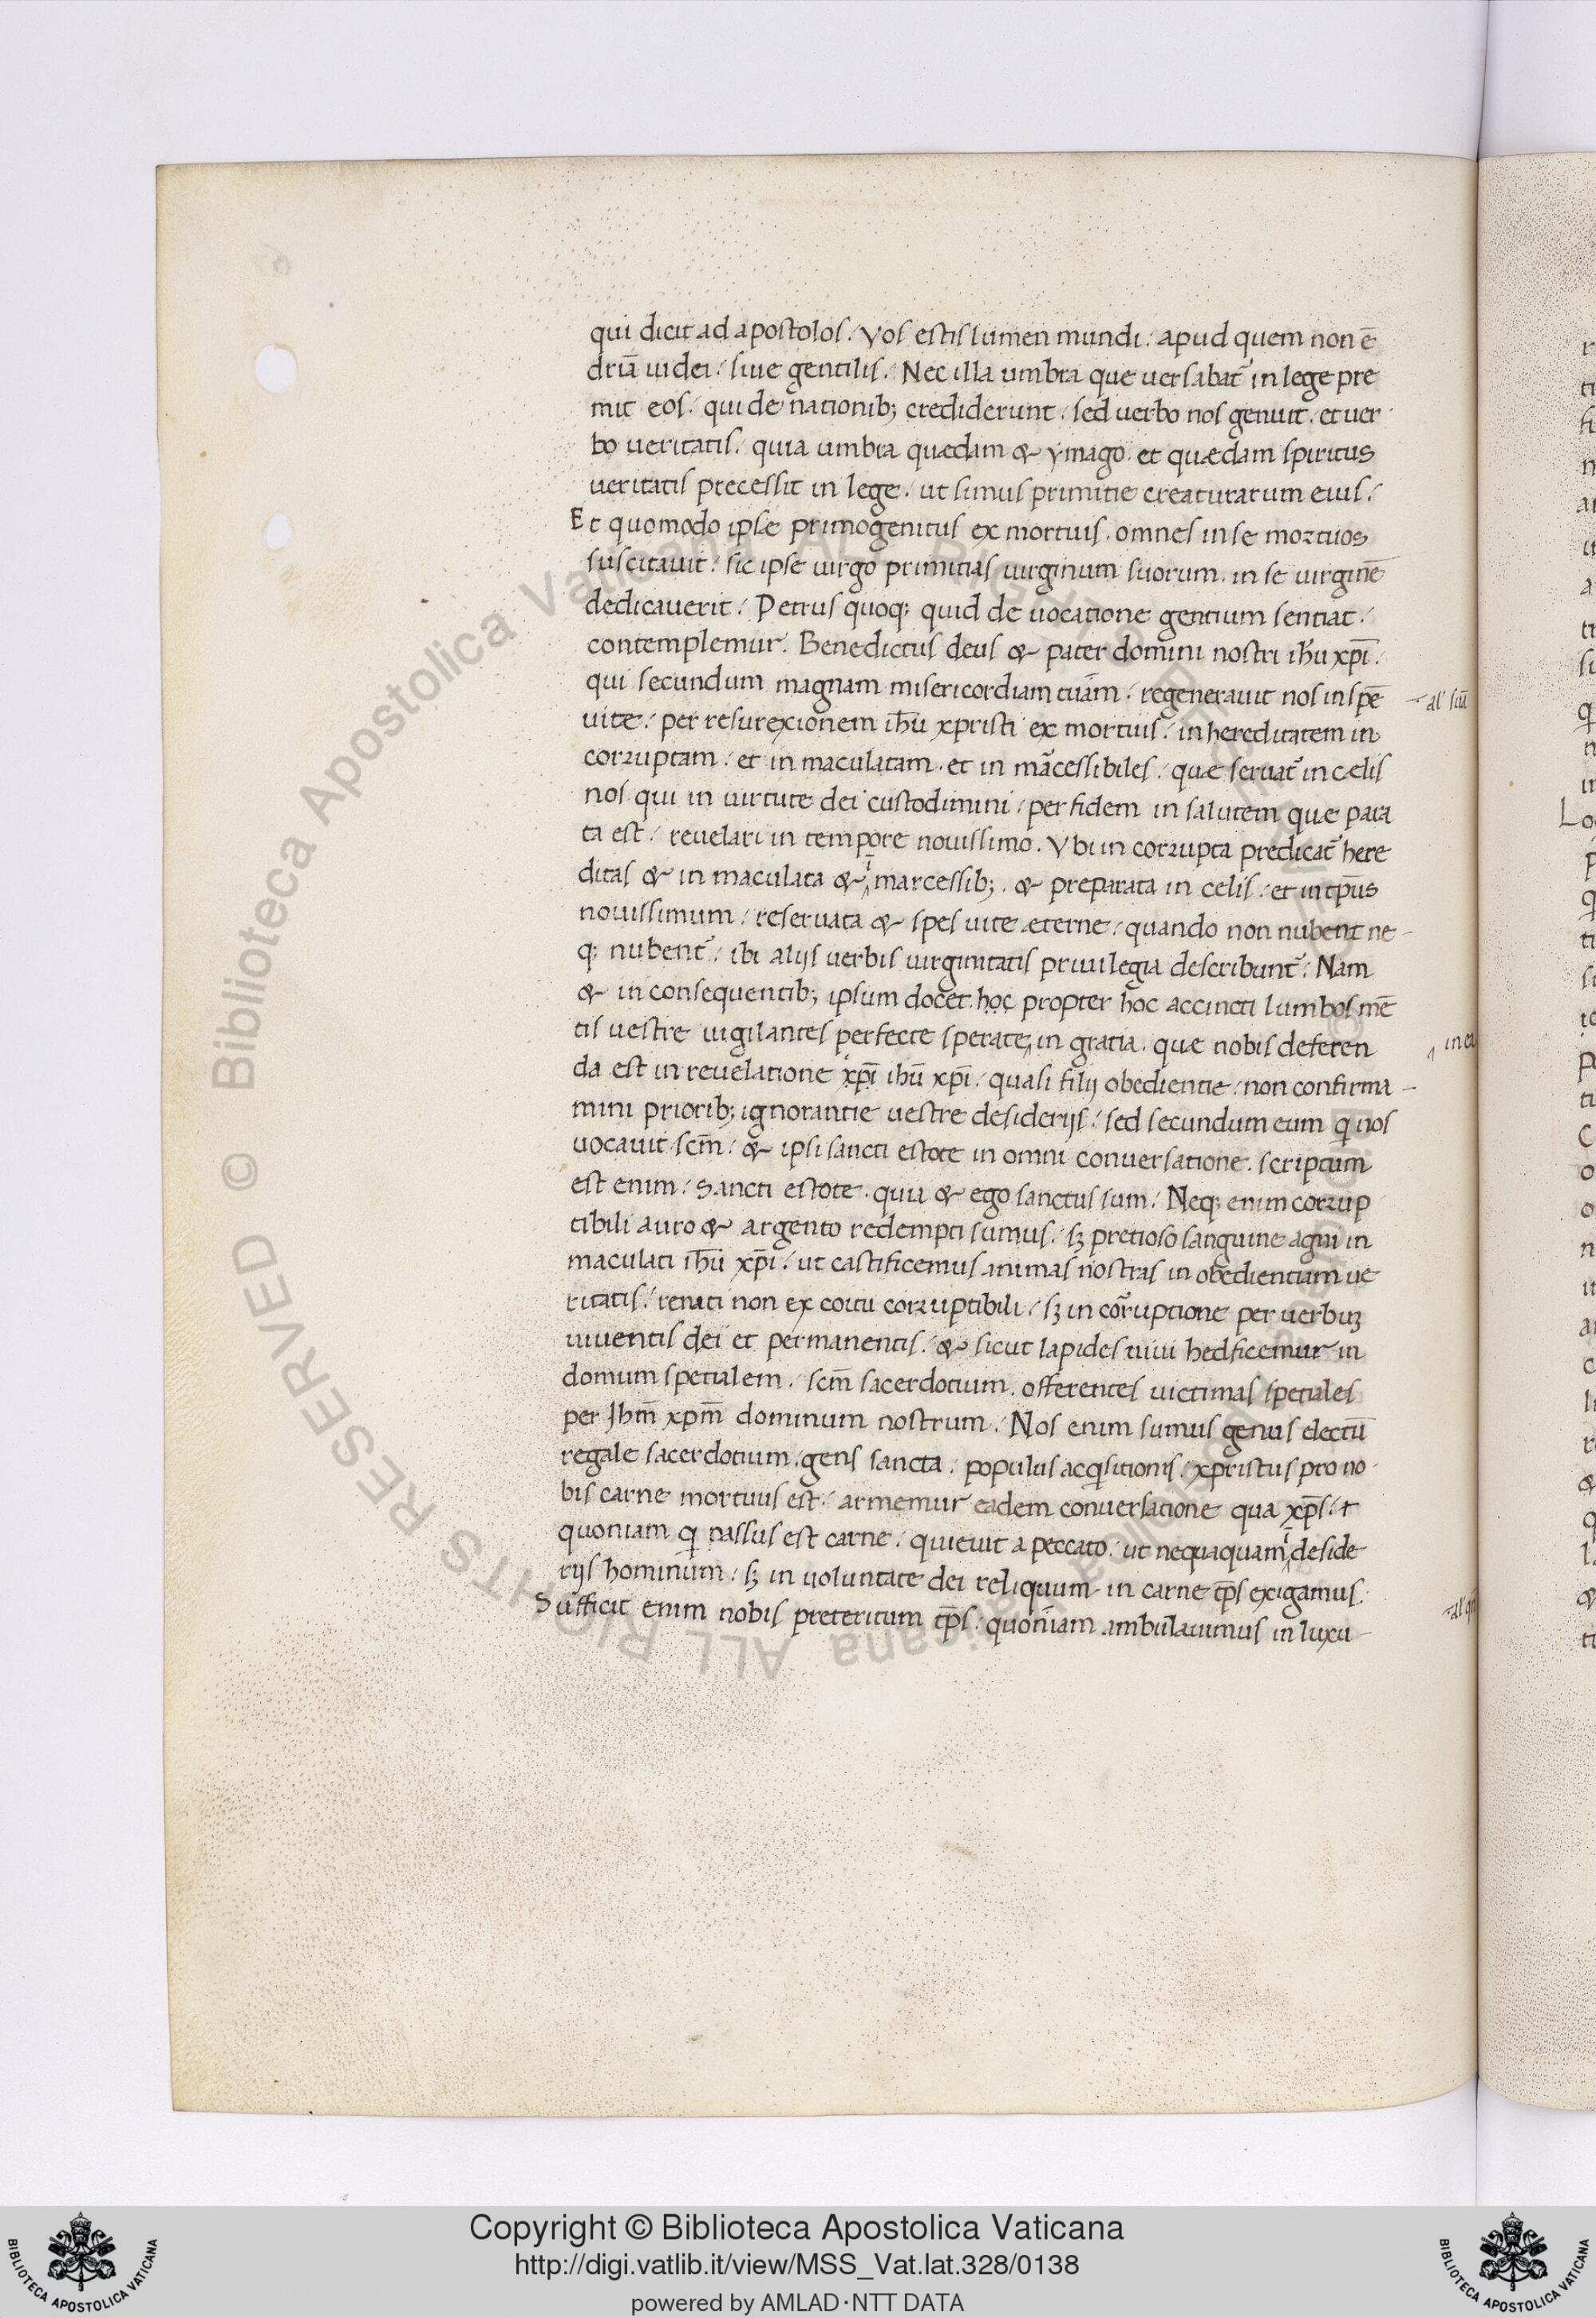 qui dicit ad apostolos. Vos estis lumen mundi. apud quem non ē
driā iudei. siue gentilis. Nec illa umbra que uersabat᷑ in lege pre
mit eos. qui de nationib; crediderunt. sed uerbo nos genuit. et uer
bo ueritatis. quia umbra quædam & ymago. et quædam spiritus
ueritatis precessit in lege. ut simus primitie creaturarum eius.
Et quomodo ipse primogenitus ex mortuis. omnes in se mortuos
suscitauit. sic ipse uirgo primitias uirginum suorum. in se uirginē
dedicauerit. Petrus quoq; quid de uocatione gentium sentiat.
contemplemur. Benedictus deus & pater domini nostri ihu xpi.
qui secundum magnam misericordiam tuam. regenerauit nos in spē
al' suā
uite. per resurexionem ihū xpristi ex mortuis. in hereditatem in
corruptam. et in maculatam. et in mācessibiles. quæ seruat᷑ in cælis
nos qui in uirtute dei custodimini. per fidem in salutem quæ para
ta est. reuelari in tempore nouissimo. Vbi in corrupta predicat᷑ here
ditas & in maculata & ī marcessib;. & preparata in celis. et in tp̄us
nouissimum. reseruata & spes uite æterne. quando non nubent ne
q; nubent᷑. ibi alijs uerbis uirginitatis priuilegia describunt᷑. Nam
& in consequentib; ipsum docet. hoc propter hoc accincti lumbos mē
tis uestre uigilantes perfecte sperate in gratia. quæ nobis deferen
in ea
da est in reuelatione xpī ihū xpī. quasi filij obedientie. non confirma
mini priorib; ignorantie uestre desiderijs. sed secundum eum q nos
uocauit scm̄. & ipsi sancti estote in omni conuersatione. scriptum
est enim. Sancti estote. quia & ego sanctus sum. Neq; enim corrup
tibili auro & argento redempti sumus. sꝫ pretioso sanguine agni in
maculati ihū xpī. ut castificemus animas nostras in obedientiam ue
ritatis. renati non ex coitu corruptibili. sꝫ in corruptione per uerbuꝫ
uiuentis dei et permanentis. & sicut lapides uiui hedficemur in
domum spetialem. scm̄ sacerdotium. offerentes uictimas spetiales
per Jhm̄ xpm̄ dominum nostrum. Nos enim sumus genus electū
regale sacerdotium. gens sancta. populus acqsitionis. xpristus pro no
bis carne mortuus est. armemur eadem conuersatione qua xp̄s. +
quoniam q passus est carne. quieuit a peccato. ut nequaquam ī deside
rijs hominum. sꝫ in uoluntate dei reliquum in carne tp̄s exigamus.
Sufficit enim nobis preteritum tp̄s. quoniam ambulauimus in luxu
© Biblioteca Apostolica Vaticana ALL RIGHTS RESERVED
Copyright © Biblioteca Apostolica Vaticana
http://digi.vatlib.it/view/MSS_Vat.lat.328/0138
powered by AMLAD·NTT DATA
BIBLIOTECA APOSTOLICA VATICANA
BIBLIOTECA APOSTOLICA VATICANA